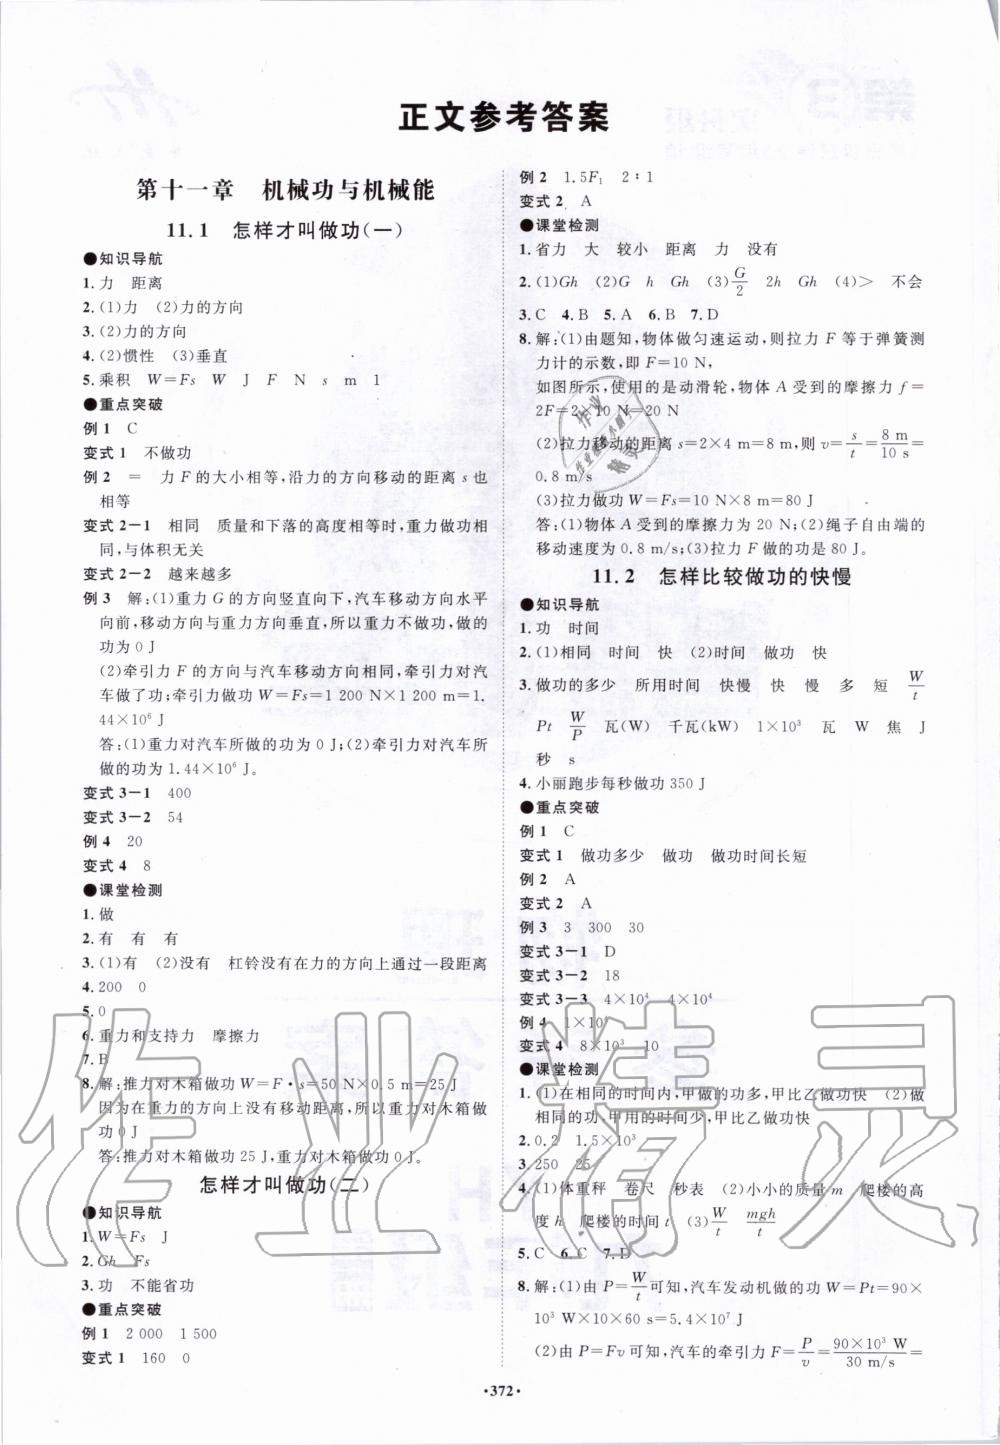 正文参考答案
第十一章 机械功与机械能
11.1 怎样才叫做功(一)
●知识导航
1.力 距离
2.(1)力 (2)力的方向
3.(2)力的方向
4.(2)惯性 (3)垂直
5.乘积 W=Fs W J F N s m 1
●重点突破
例1 C
变式1 不做功
例2 = 力F的大小相等,沿力的方向移动的距离s也
相等
变式2-1 相同 质量和下落的高度相等时,重力做功相
同,与体积无关
变式2-2 越来越多
例3 解:(1)重力G的方向竖直向下,汽车移动方向水平
向前,移动方向与重力方向垂直,所以重力不做功,做的
功为0 J
(2)牵引力F的方向与汽车移动方向相同,牵引力对汽
车做了功:牵引力做功W=Fs=1 200 N×1 200 m=1.
44×10⁶ J
答:(1)重力对汽车所做的功为0 J;(2)牵引力对汽车所
做的功为1.44×10⁶ J。
变式3-1 400
变式3-2 54
例4 20
变式4 8
●课堂检测
1.做
2.有 有 有
3.(1)有 (2)没有 杠铃没有在力的方向上通过一段距离
4.200 0
5.0
6.重力和支持力 摩擦力
7.B
8.解:推力对木箱做功W=F·s=50 N×0.5 m=25 J
因为在重力的方向上没有移动距离,所以重力对木箱做
功0 J
答:推力对木箱做功25 J,重力对木箱做功0 J。
怎样才叫做功(二)
●知识导航
1.W=Fs J
2.Gh Fs
3.功 不能省功
●重点突破
例1 2 000 1 500
变式1 160 0
例2 1.5F₁ 2∶1
变式2 A
●课堂检测
1.省力 大 较小 距离 力 没有
2.(1)Gh (2)G h Gh (3)G/2 2h Gh (4)> 不会
3.C 4.B 5.A 6.B 7.D
8.解:(1)由题知,物体做匀速运动,则拉力F等于弹簧测
力计的示数,即F=10 N,
如图所示,使用的是动滑轮,物体A受到的摩擦力f=
2F=2×10 N=20 N
(2)拉力移动的距离s=2×4 m=8 m,则v=s/t=8 m/10 s=
0.8 m/s
(3)拉力做功W=Fs=10 N×8 m=80 J
答:(1)物体A受到的摩擦力为20 N;(2)绳子自由端的
移动速度为0.8 m/s;(3)拉力F做的功是80 J。
11.2 怎样比较做功的快慢
●知识导航
1.功 时间
2.(1)相同 时间 快 (2)时间 做功 快
3.做功的多少 所用时间 快慢 快 慢 多 短 W/t
Pt W/P 瓦(W) 千瓦(kW) 1×10³ 瓦 W 焦 J
秒 s
4.小丽跑步每秒做功350 J
●重点突破
例1 C
变式1 做功多少 做功 做功时间长短
例2 A
变式2 A
例3 3 300 30
变式3-1 D
变式3-2 18
变式3-3 4×10⁴ 4×10⁴
例4
变式4 8×10³ 10
●课堂检测
1.(1)在相同的时间内,甲做的功多,甲比乙做功快 (2)做
相同的功,甲用的时间少,甲比乙做功快
2.0.2 1.5×10³
3.250 25
4.(1)体重秤 卷尺 秒表 (2)小小的质量m 爬楼的高
度h 爬楼的时间t (3)W/t mgh/t
5.C 6.C 7.D
8.解:(1)由P=W/t可知,汽车发动机做的功W=Pt=90×
10³ W×10×60 s=5.4×10⁷ J
(2)由P=Fv可知,汽车的牵引力F=P/v=90×10³ W/30 m/s=
·372·
作业精灵